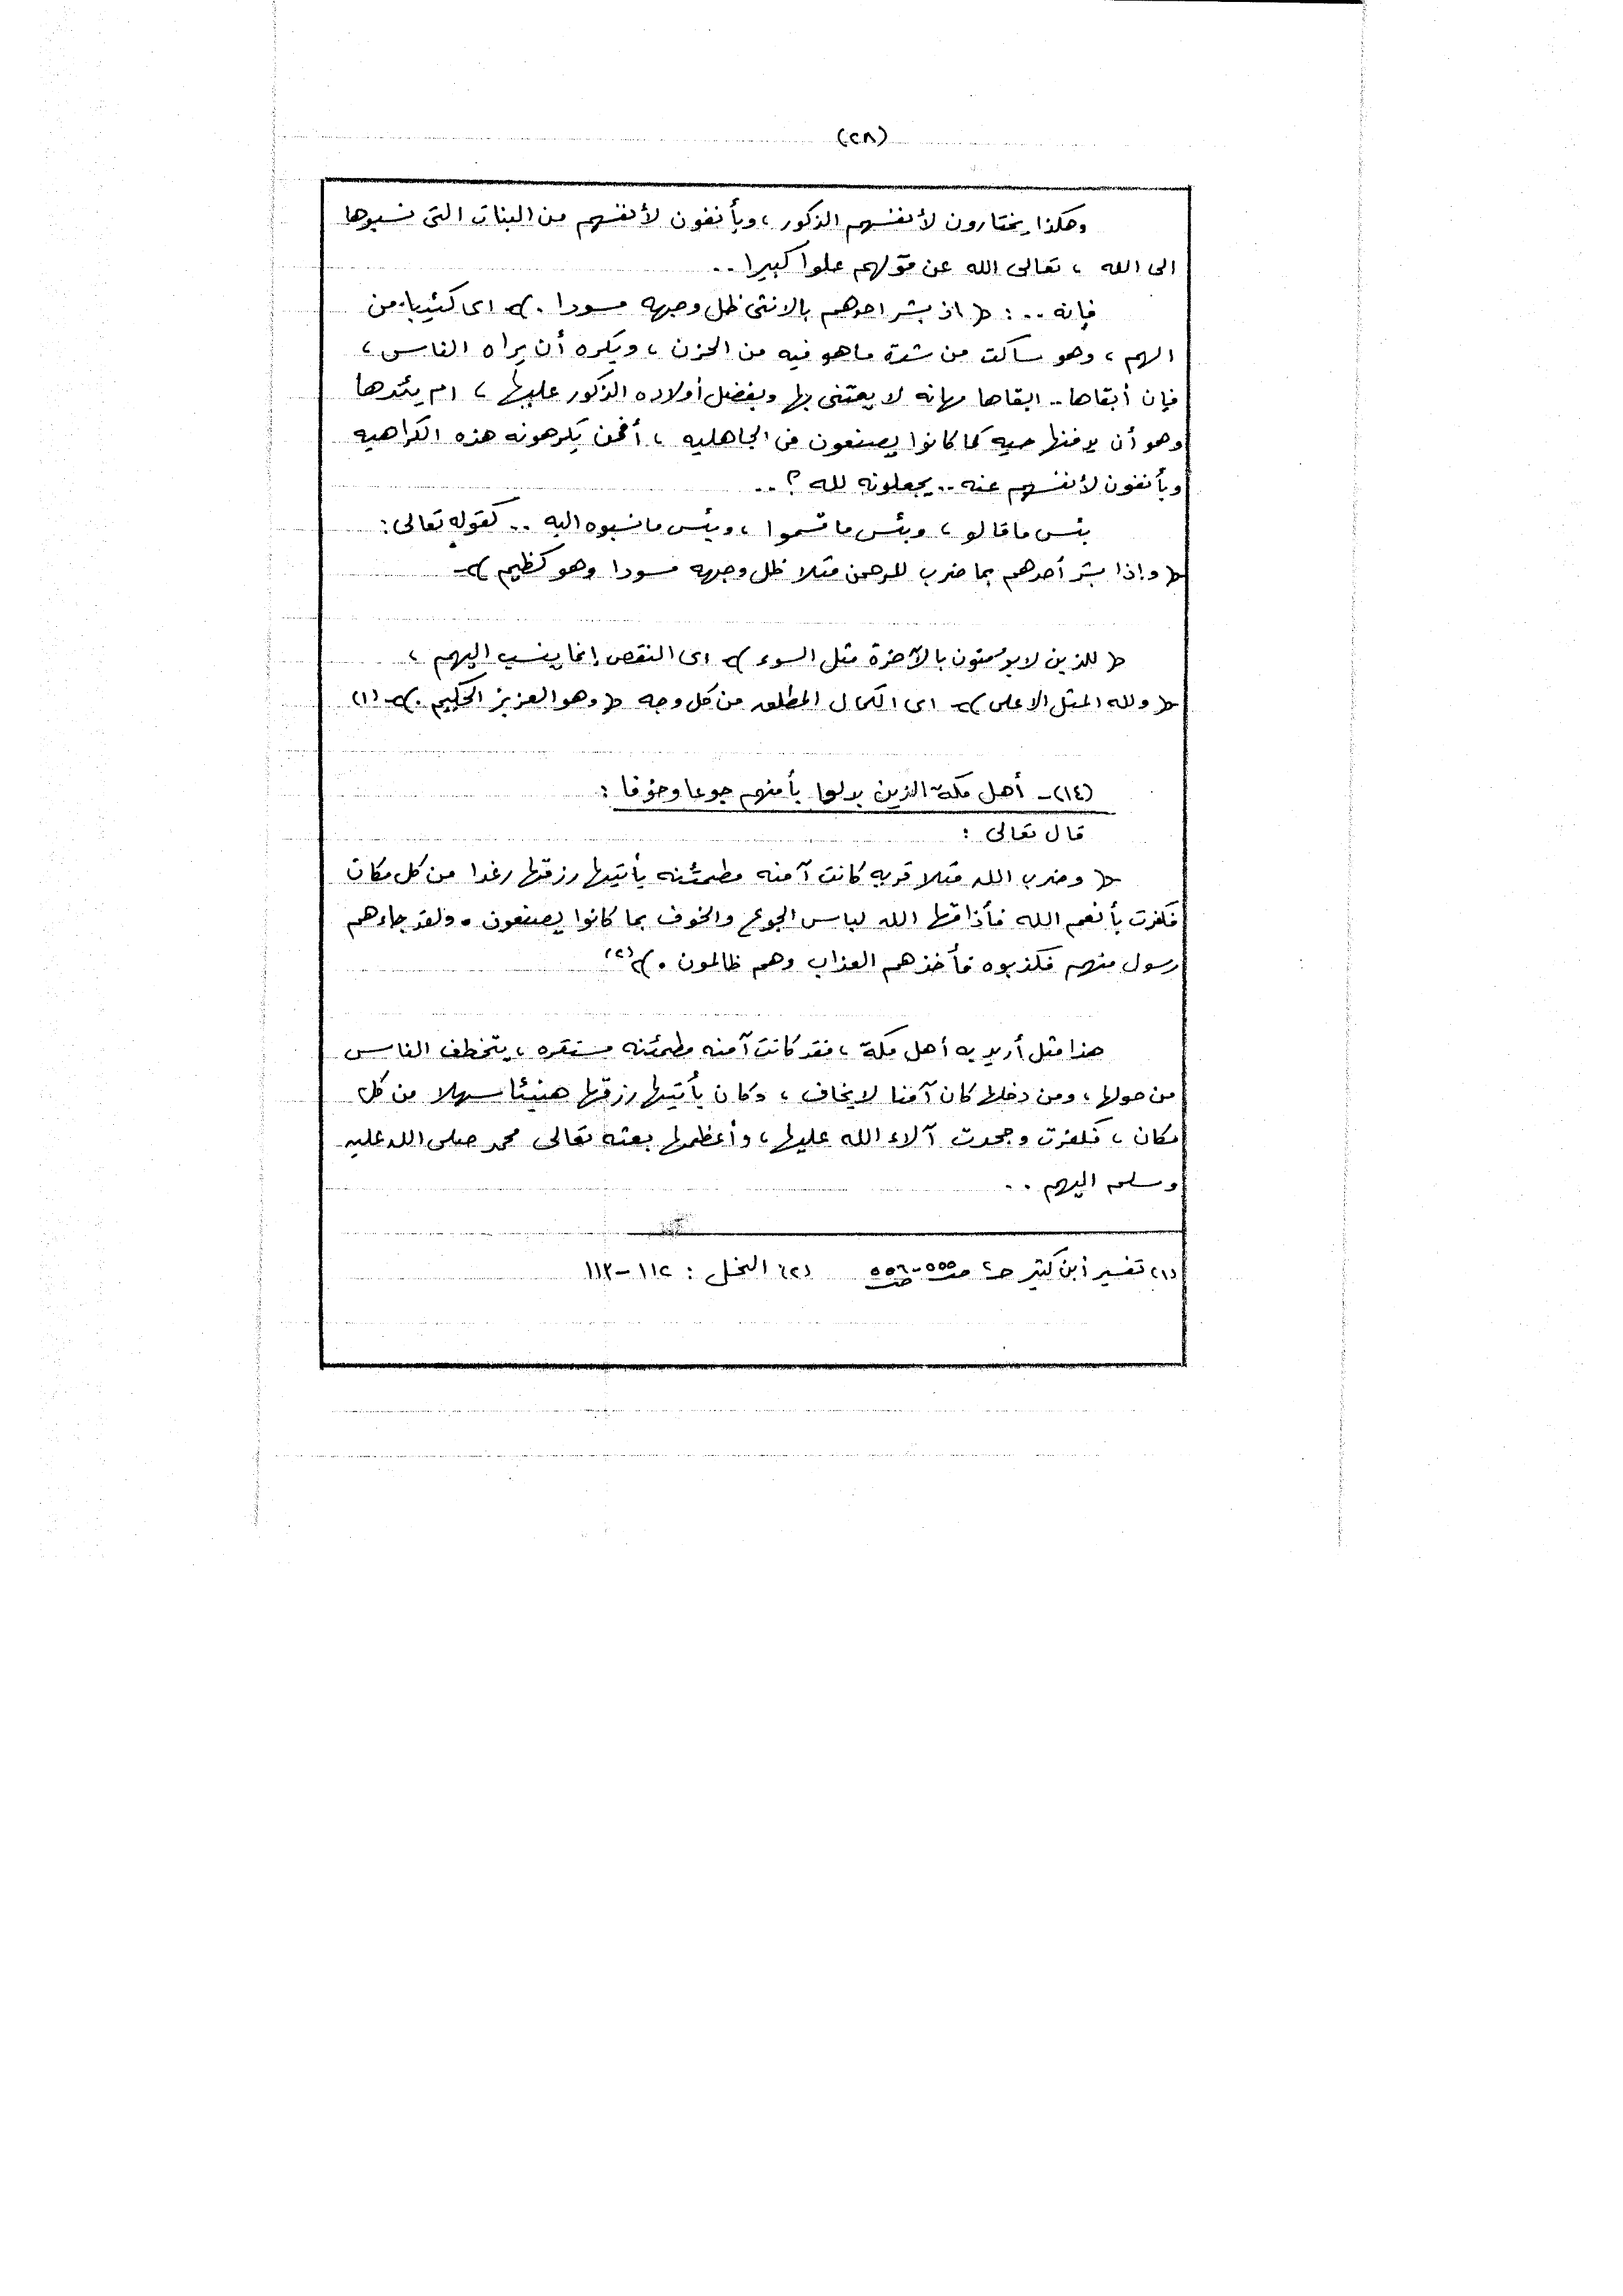 (٢٨)
وهكذا يختارون لأنفسهم الذكور ، ويأنفون لأنفسهم من البنات التى نسبوها
الى الله ، تعالى الله عن قولهم علوا كبيرا ..
فإنه .. : ﴿ اذ بشر احدهم بالانثى ظل وجهه مسودا . ﴾ اى كئيبا من
الهم ، وهو ساكت من شدة ما هو فيه من الحزن ، ويكره أن يراه الناس ،
فإن أبقاها .. ابقاها مهانه لا يعتنى بها ويفضل أولاده الذكور عليها ، ام يئدها
وهو أن يدفنها حيه كما كانوا يصنعون فى الجاهليه ، أفمن يكرهونه هذه الكراهيه
ويأنفون لأنفسهم عنه .. يجعلونه لله ؟ ..
بئس ما قالو ، وبئس ما قسموا ، وبئس ما نسبوه اليه .. كقوله تعالى :
﴿ وإذا بشر أحدهم بما ضرب للرحمن مثلا ظل وجهه مسودا وهو كظيم ﴾
﴿ للذين لا يؤمنون بالآخرة مثل السوء ﴾ اى النقص إنما ينسب اليهم ،
﴿ ولله المثل الاعلى ﴾ اى الكمال المطلق من كل وجه ﴿ وهو العزيز الحكيم . ﴾ (١)
(١٤) - أهل مكة الذين بدلوا بأمنهم جوعا وخوفا :
قال تعالى :
﴿ وضرب الله مثلا قريه كانت آمنه مطمئنه يأتيها رزقها رغدا من كل مكان
فكفرت بأنعم الله فأذاقها الله لباس الجوع والخوف بما كانوا يصنعون . ولقد جاءهم
رسول منهم فكذبوه فأخذهم العذاب وهم ظالمون . ﴾ (٢)
هذا مثل أريد به أهل مكة ، فقد كانت آمنه مطمئنه مستقره ، يتخطف الناس
من حولها ، ومن دخلها كان آمنا لا يخاف ، وكان يأتيها رزقها هنيئا سهلا من كل
مكان ، فكفرت وجحدت آلاء الله عليها ، وأعظمها بعثه تعالى محمد صلى الله عليه
وسلم اليهم ..
(١) تفسير أبن كثير حـ٢ صـ٥٥٥ - صـ٥٥٦ (٢) النحل : ١١٢ - ١١٣